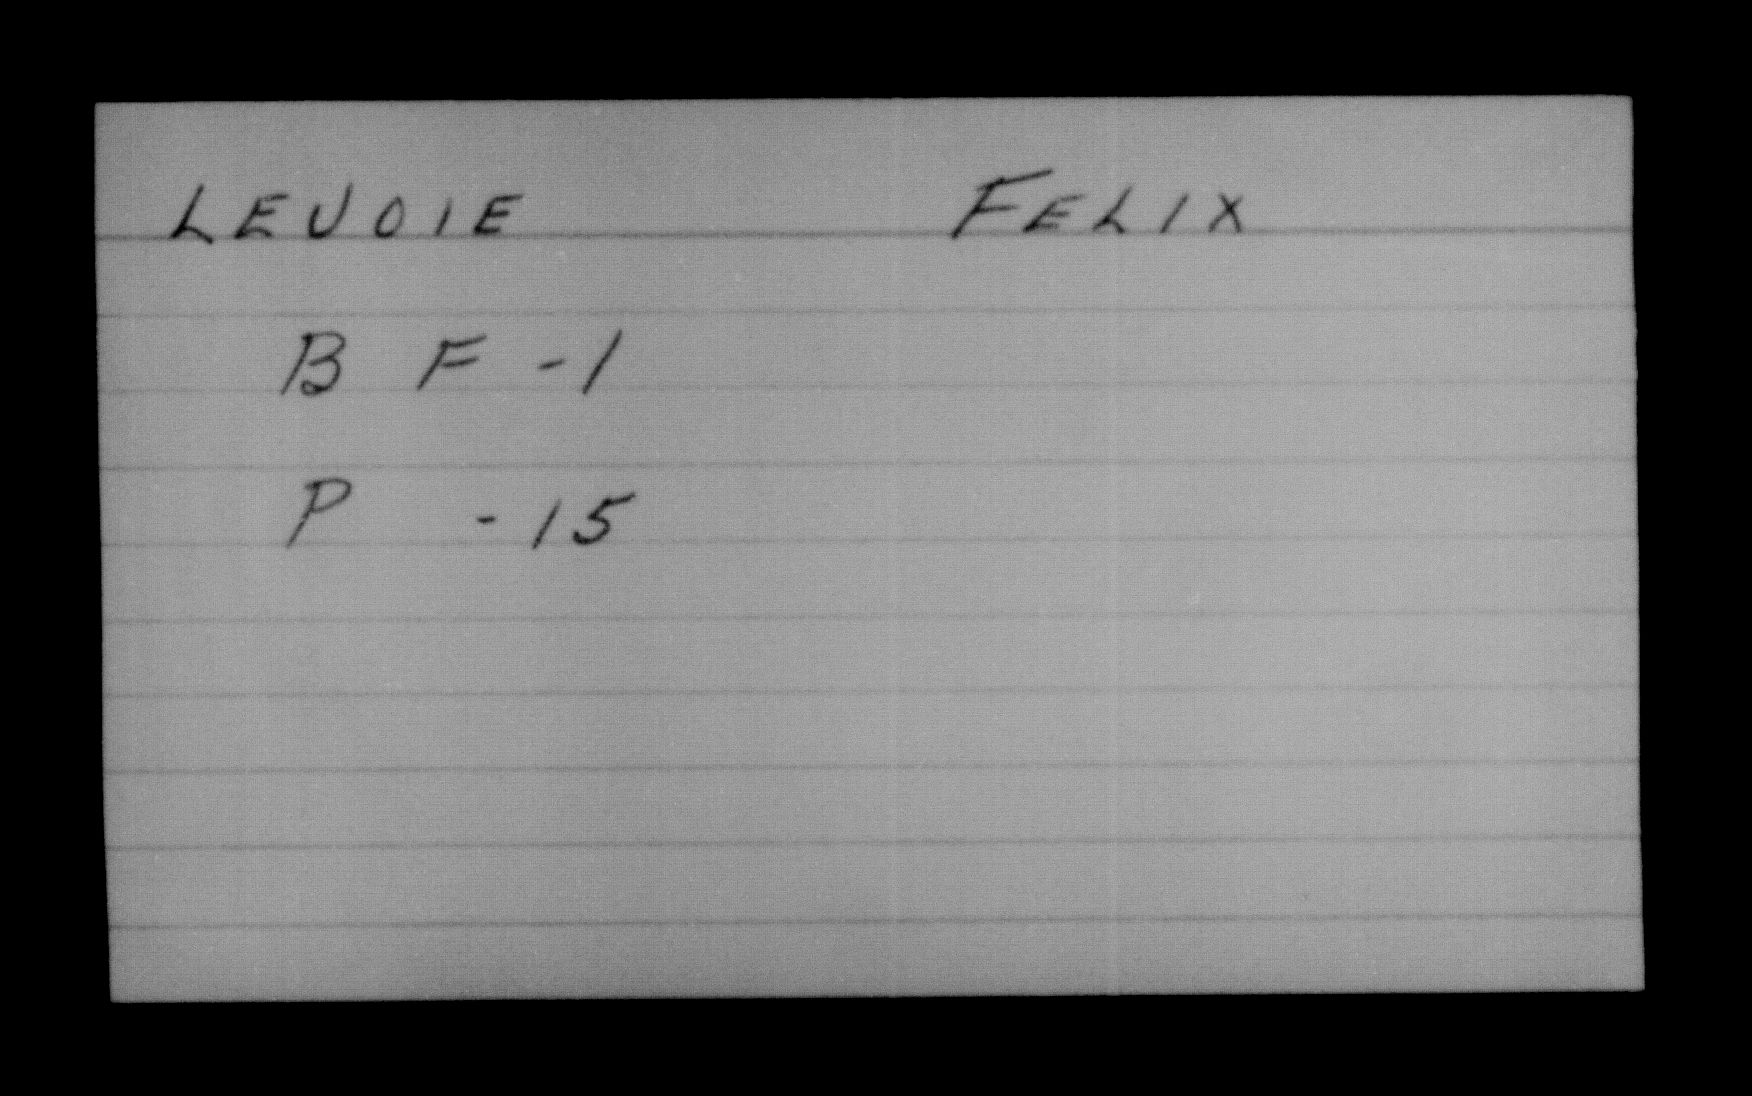 LEVOIE FELIX
B F -1
P -15